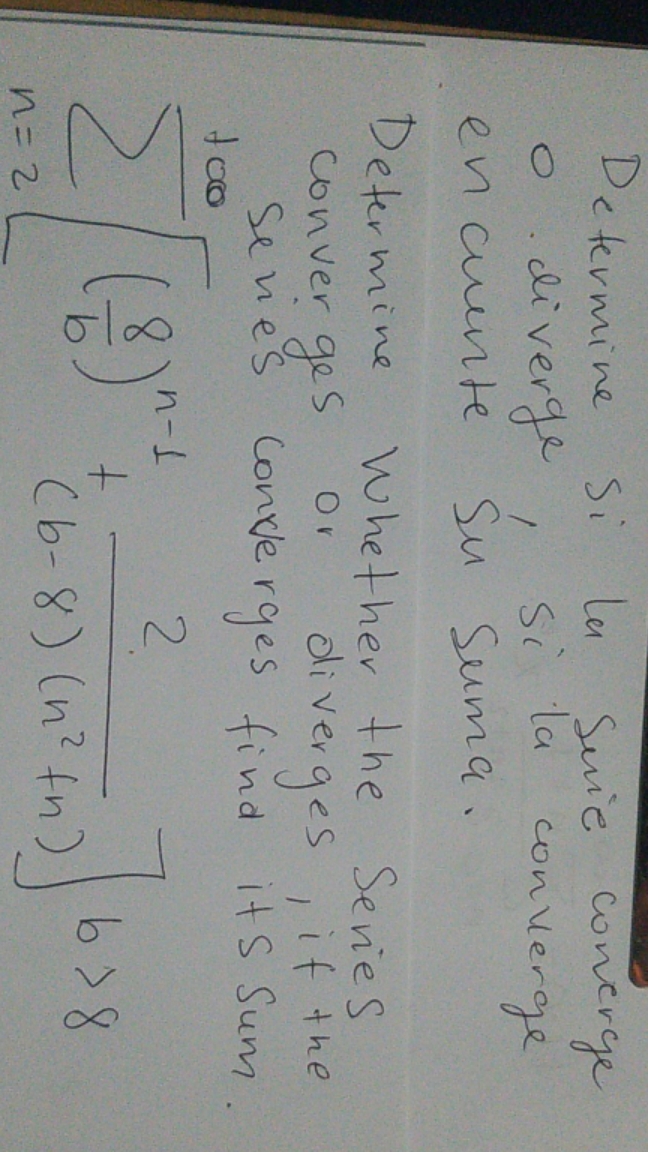 Determine si la serie converge
o diverge, si la converge
encuente su suma.
Determine whether the series
converges or diverges, if the
series converges find its sum.
+∞
∑ [ (8/b)^{n-1} + 2/((b-8)(n²+n)) ] b>8
n=2